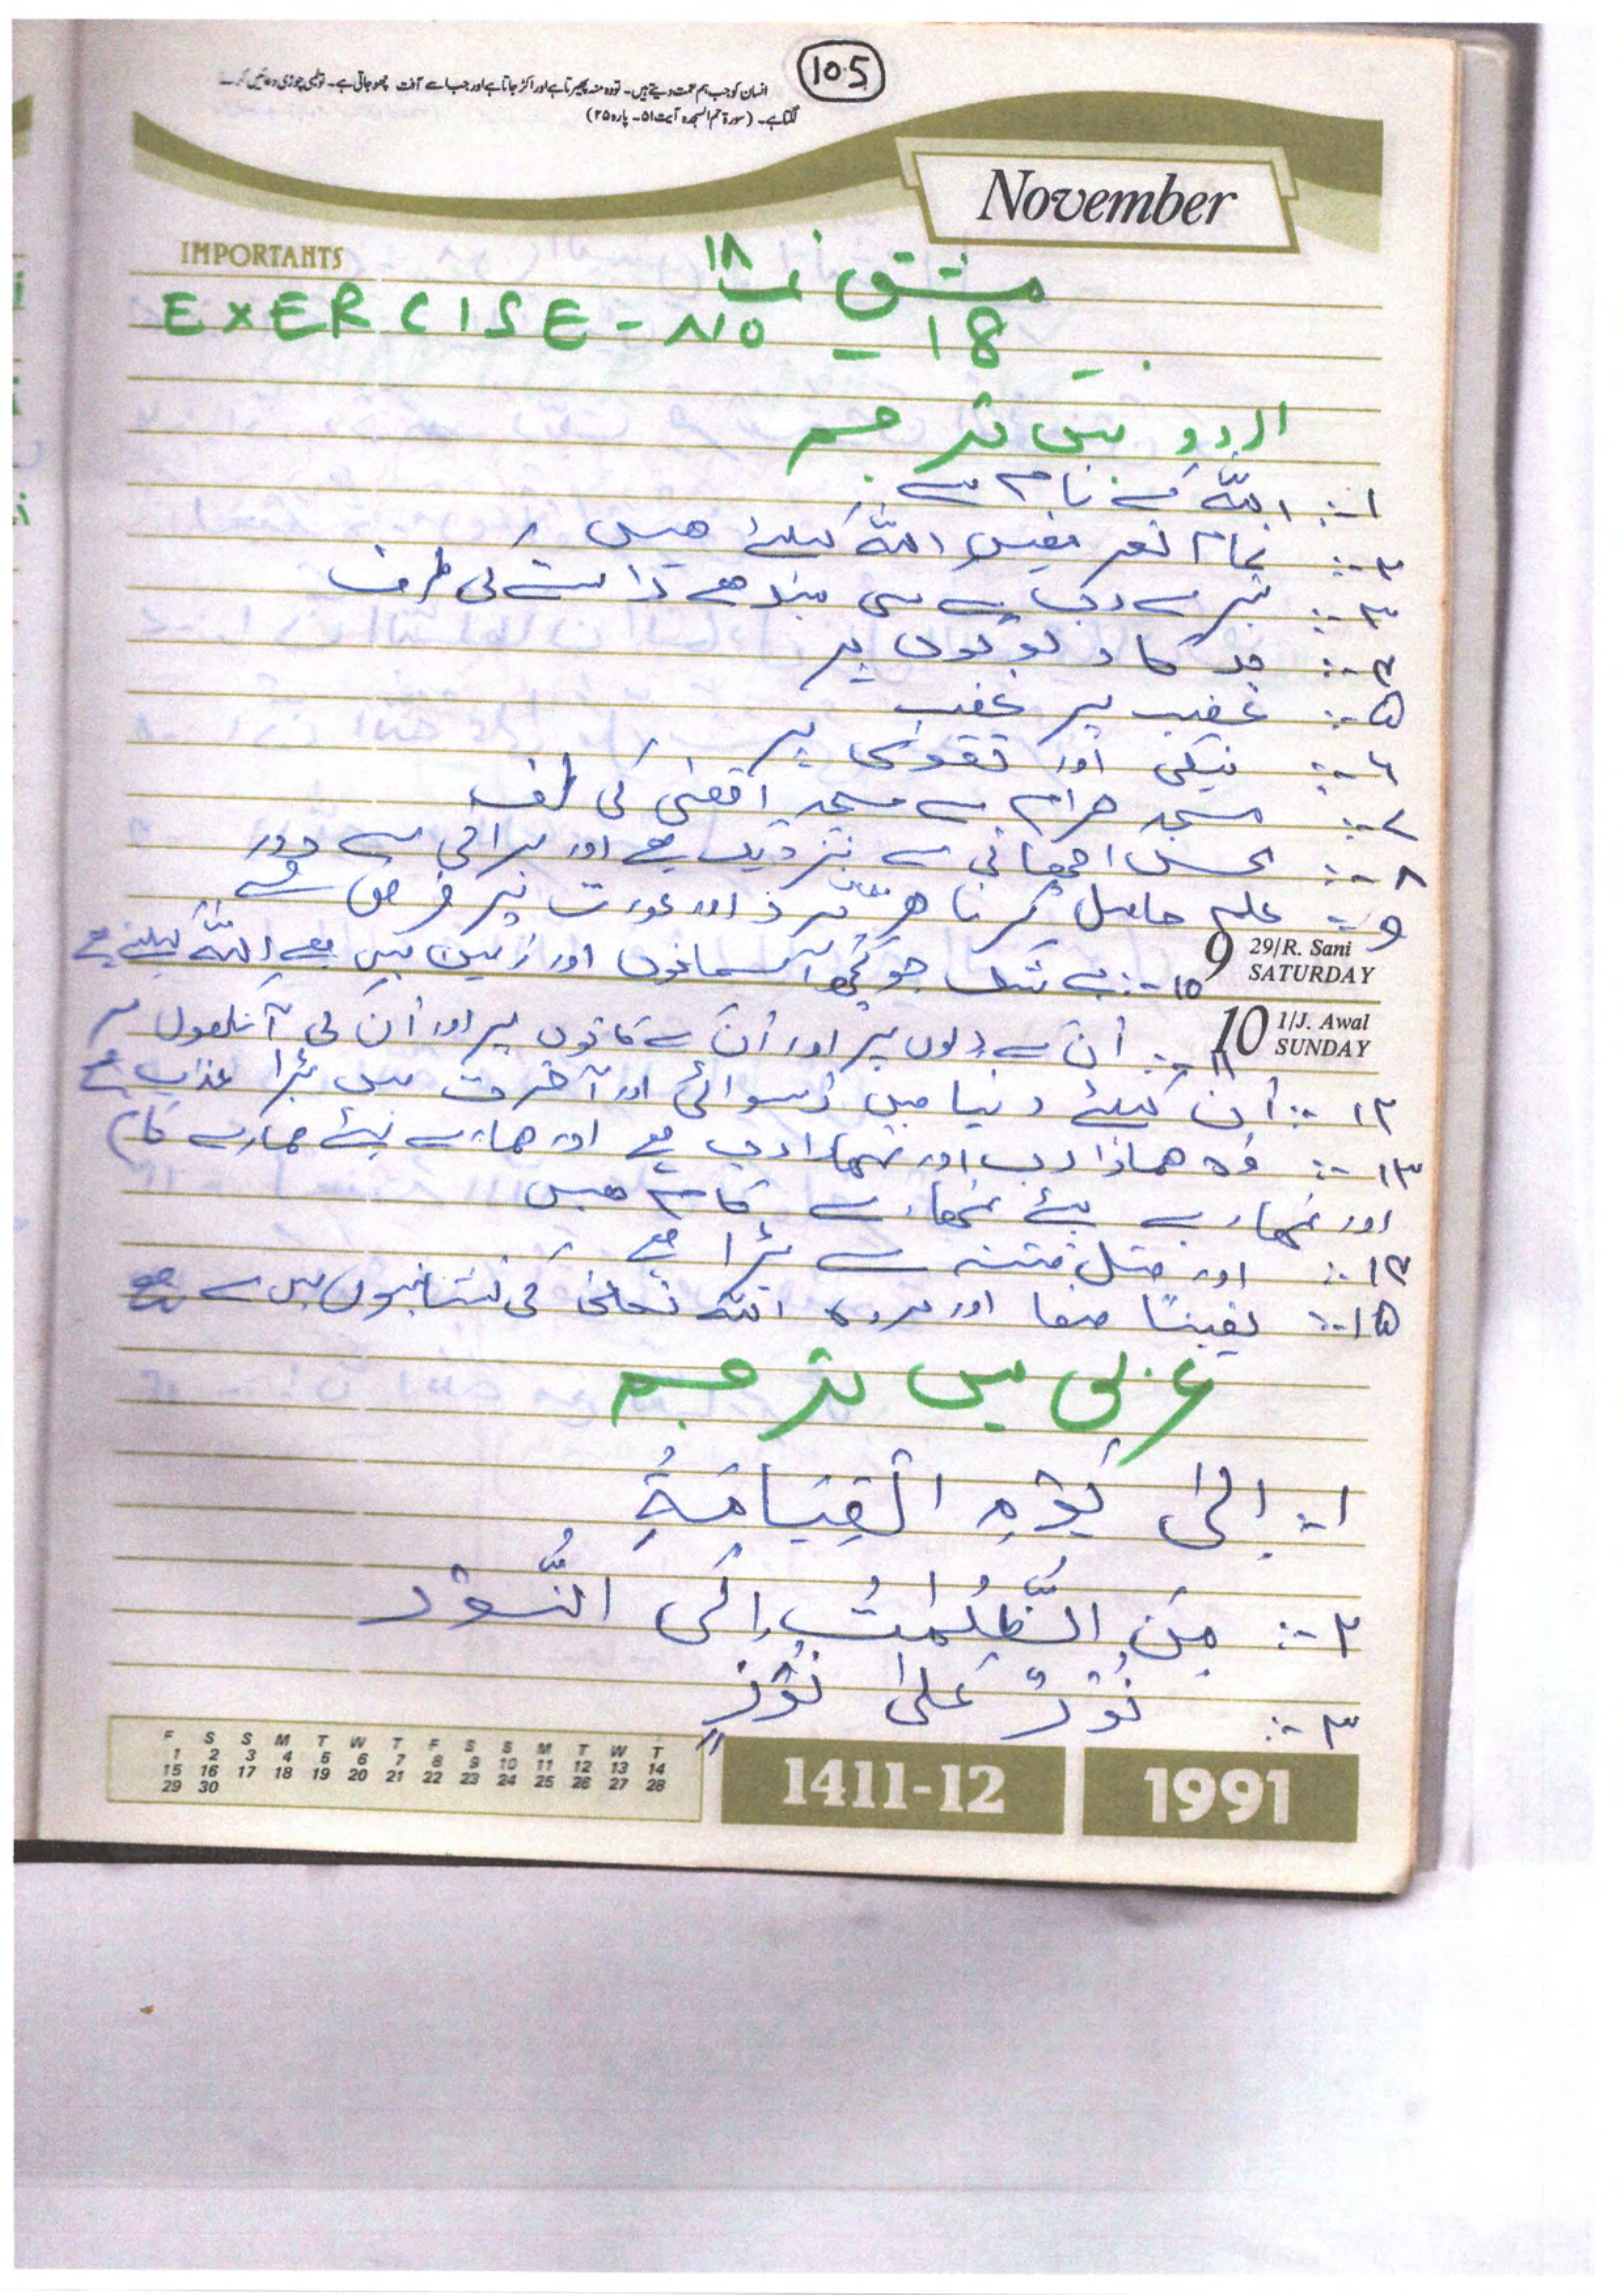 105
انسان کو جب ہم نعمت دیتے ہیں۔ تو وہ منہ پھیرتا ہے اور اکڑ جاتا ہے اور جب اسے آفت چھو جاتی ہے۔ تو لمبی چوڑی دعائیں کرنے
لگتا ہے۔ (سورۃ حم السجدہ آیت ۵۱۔ پارہ ۲۵)
November
IMPORTANTS
مشق نمبر ۱۸
EXERCISE - NO - 18
اردو میں ترجمہ
۱-: اللہ کے نام سے
۲-: تمام تعریفیں اللہ کیلئے ھیں
۳-: تیرے رب سے سیدھے راستے کی طرف
۴-: مددگار لوگوں پر
۵-: غضب پر غضب
۶-: نیکی اور تقویٰ پر
۷-: مسجد حرام سے مسجد اقصٰی کی طرف
۸-: محسن اچھائی سے نزدیک ھے اور برائی سے دور
۹-: علم حاصل کرنا ھر مسلمان مرد اور عورت پر فرض ھے
9 29/R. Sani SATURDAY
۱۰-: بے شک جو کچھ آسمانوں اور زمین میں ھے اللہ کیلئے ھے
10 1/J. Awal SUNDAY
۱۱-: اُن کے دلوں پر اور اُن کے کانوں پر اور اُن کی آنکھوں پر
۱۲-: اُن کیلئے دنیا میں رُسوائی اور آخرت میں بڑا عذاب ھے
۱۳-: وہ ھمارا رب اور تمھارا رب ھے اور ھمارے لیئے ھمارے کام
اور تمھارے لیئے تمھارے کام ھیں
۱۴-: اور قتل فتنہ سے بڑا ھے
۱۵-: یقینًا صفا اور مروہ اللہ تعالٰی کی نشانیوں میں سے ھے
عربی میں ترجمہ
۱-: اِلٰی یَوْمِ الْقِیَامَةِ
۲-: مِنَ الظُّلُمٰتِ اِلَی النُّوْر
۳-: نُوْرٌ عَلٰی نُوْرٍ
F S S M T W T F S S M T W T
1 2 3 4 5 6 7 8 9 10 11 12 13 14
15 16 17 18 19 20 21 22 23 24 25 26 27 28
29 30
1411-12
1991